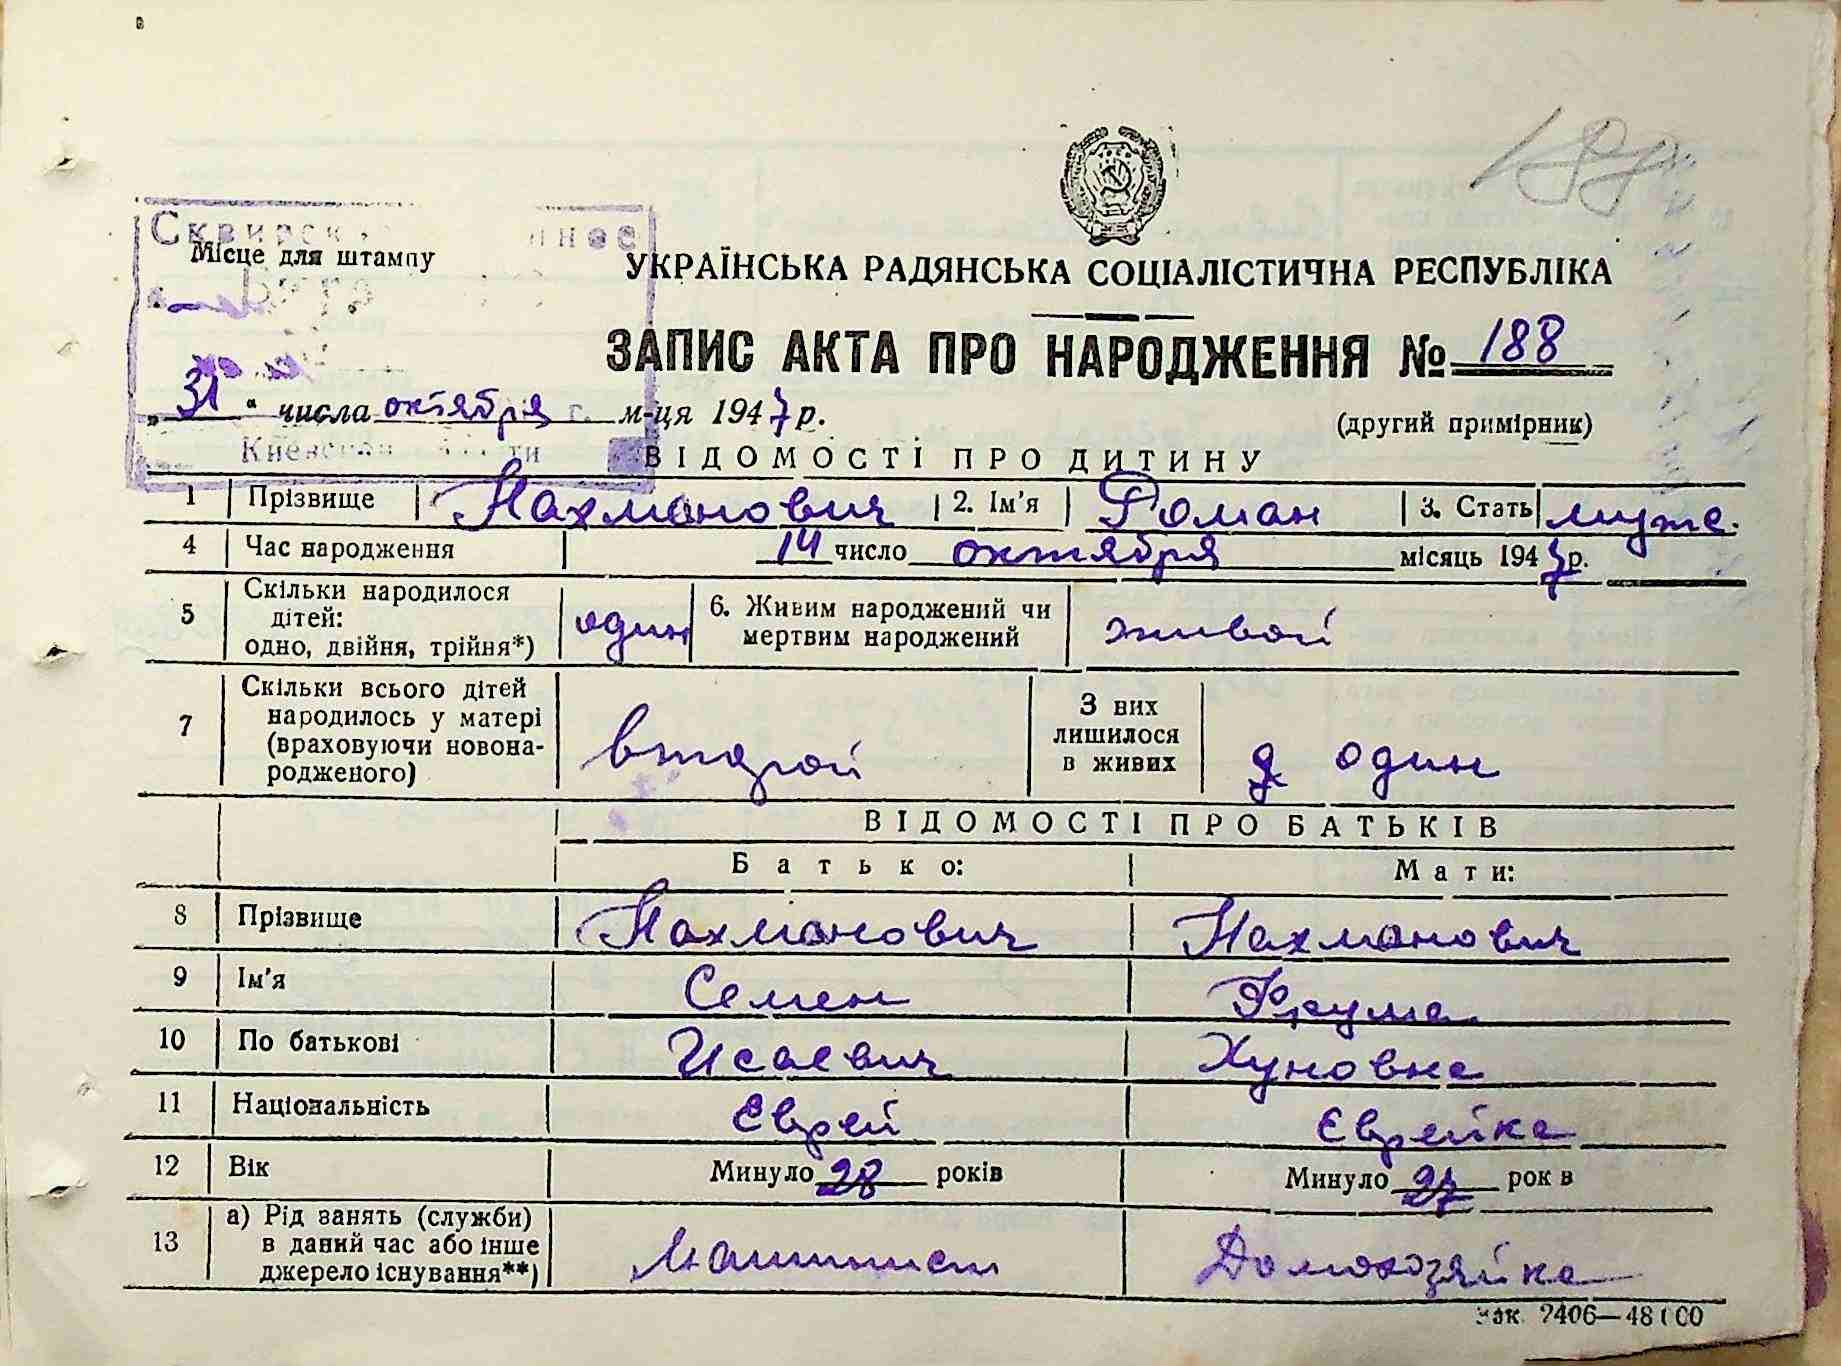 188
Місце для штампу
УКРАЇНСЬКА РАДЯНСЬКА СОЦІАЛІСТИЧНА РЕСПУБЛІКА
ЗАПИС АКТА ПРО НАРОДЖЕННЯ № 188
„31" числа октября м-ця 1947 р.
(другий примірник)
ВІДОМОСТІ ПРО ДИТИНУ
1 Прізвище Нахманович 2. Ім'я Роман 3. Стать мужс.
4 Час народження 14 число октября місяць 1947 р.
5 Скільки народилося дітей: одно, двійня, трійня*) один 6. Живим народжений чи мертвим народжений живой
7 Скільки всього дітей народилось у матері (враховуючи новона-родженого) второй З них лишилося в живих один
ВІДОМОСТІ ПРО БАТЬКІВ
Батько: Мати:
8 Прізвище Нахманович Нахманович
9 Ім'я Семен Фрума
10 По батькові Исаевич Хуновна
11 Національність Єврей Єврейка
12 Вік Минуло 28 років Минуло 27 рок в
13 а) Рід занять (служби) в даний час або інше джерело існування**) Машинист Домохозяйка
Зак. 2406—48